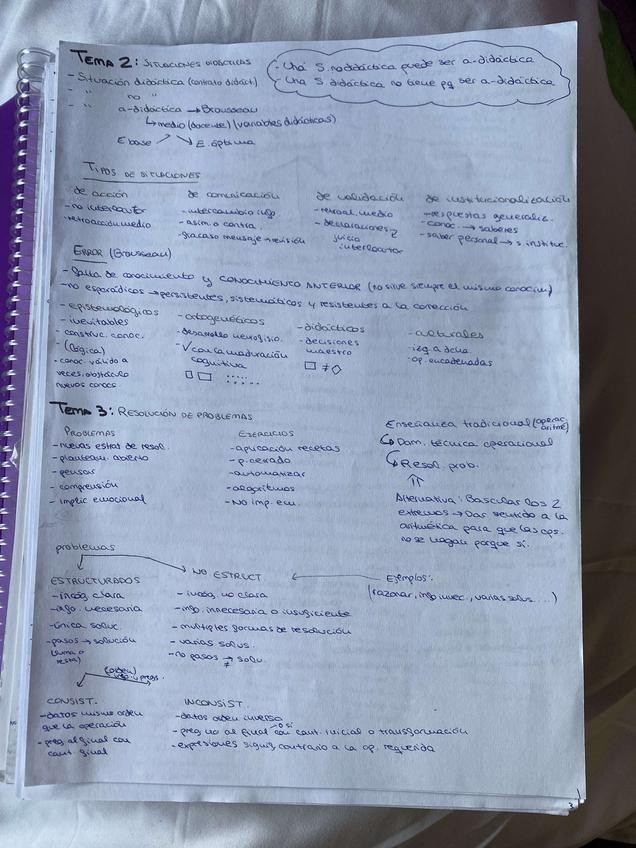 TEMA 2: SITUACIONES DIDÁCTICAS
- Una S. no didáctica puede ser a-didáctica
- Una S. didáctica no tiene pq ser a-didáctica
- Situación didáctica (contrato didáct.)
- " no "
- " a-didáctica → Brousseau
↳ medio (docente) (variables didácticas)
E base ↗ ↘ E. óptima
TIPOS DE SITUACIONES
de acción
- no interlocutor
- retroacción medio
de comunicación
- intercambio info
- asim. o contra.
- fracaso mensaje → revisión
de validación
- retroal. medio
- declaraciones
juicio
interlocutor
de institucionalización
- respuestas generaliz.
- conoc. → saberes
- saber personal → s. instituc.
ERROR (Brousseau)
- falta de conocimiento y CONOCIMIENTO ANTERIOR (no sirve siempre el mismo conocim)
- no esporádicos → persistentes, sistemáticos y resistentes a la corrección
- epistemológicos
- inevitables
- construc. conoc.
- (lógica)
- conoc. válido a
veces, obstáculo
nuevos conocs
- ontogenéticos
- desarrollo neurofisio.
- ✓ con la maduración
cognitiva
- didácticos
- decisiones
maestro
□ ≠ ◇
- culturales
- izq a dcha.
- op. encadenadas
TEMA 3: RESOLUCIÓN DE PROBLEMAS
PROBLEMAS
- nuevas estrat de resol.
- planteam. abierto
- pensar
- comprensión
- implic emocional
EJERCICIOS
- aplicación recetas
- p. cerrado
- automatizar
- algoritmos
- NO imp. em.
Enseñanza tradicional (operac. aritmé)
↳ Dom. técnica operacional
↳ Resol. prob.
⇑
Alternativa: Bascular los 2
extremos → Dar sentido a la
aritmética para que las ops.
no se hagan porque sí.
problemas
ESTRUCTURADOS
- incóg. clara
- info. necesaria
- única soluc.
- pasos → solución
(suma o
resta)
NO ESTRUCT.
- incóg. no clara
- info. innecesaria o insuficiente
- múltiples formas de resolución
- varias solus.
- no pasos → soluc.
≠
Ejemplos:
(razonar, info innec., varias solus....)
(orden)
info. y preg.
CONSIST.
- datos mismo orden
que la operación
- preg al final con
cant. final
INCONSIST.
- datos orden inverso
- preg no al final o sí con cant. inicial o transformación
- expresiones signif. contrario a la op. requerida
3